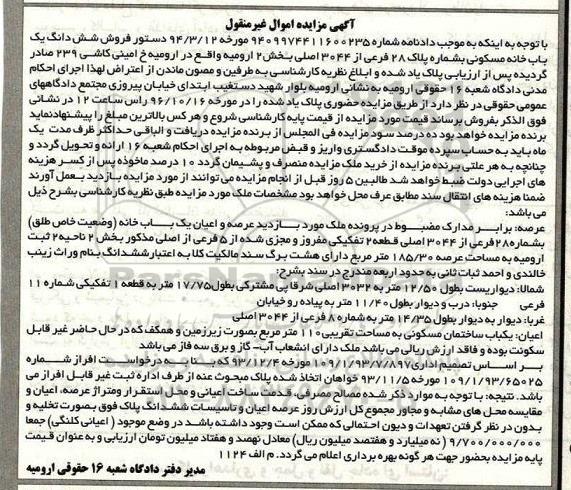 آگهی مزایده اموال غیرمنقول
با توجه به اینکه به موجب دادنامه شماره 9409974411600235 مورخه 94/3/12 دستور فروش شش دانگ یک
باب خانه مسکونی بشماره پلاک 28 فرعی از 3044 اصلی بخش 2 ارومیه واقع در ارومیه خ امینی کاشی 239 صادر
گردیده پس از ارزیابی پلاک یاد شده و ابلاغ نظریه کارشناسی به طرفین و مصون ماندن از اعتراض لهذا اجرای احکام
مدنی دادگاه شعبه 16 حقوقی ارومیه به نشانی ارومیه بلوار شهید دستغیب ابتدای خیابان پیروزی مجتمع دادگاههای
عمومی حقوقی در نظر دارد از طریق مزایده حضوری پلاک یاد شده را در مورخه 96/10/16 راس ساعت 12 در نشانی
فوق الذکر بفروش برساند قیمت مورد مزایده از قیمت پایه کارشناسی شروع و هر کس بالاترین مبلغ را پیشنهاد نماید
برنده مزایده خواهد بود ده درصد سود مزایده فی المجلس از برنده مزایده دریافت و الباقی حداکثر ظرف مدت یک
ماه باید به حساب سپرده موقت دادگستری واریز و قبض مربوطه به اجرای احکام شعبه 16 ارائه و تحویل گردد و
چنانچه به هر علتی برنده مزایده از خرید ملک مزایده منصرف و پشیمان گردد 10 درصد ماخوذه پس از کسر هزینه
های اجرایی دولت ضبط خواهد شد طالبین 5 روز قبل از انجام مزایده می توانند از مورد مزایده بازدید بعمل آورند
ضمنا هزینه های انتقال سند مطابق عرف محل خواهد بود مشخصات ملک مورد مزایده طبق نظریه کارشناسی بشرح ذیل
می باشد:
عرصه: برابر مدارک مضبوط در پرونده ملک مورد بازدید عرصه و اعیان یک باب خانه (وضعیت خاص طلق)
بشماره 28 فرعی از 3044 اصلی قطعه 2 تفکیکی مفروز و مجزی شده از 5 فرعی از اصلی مذکور بخش 2 ناحیه 2 ثبت
ارومیه به مساحت عرصه 185/30 متر مربع دارای هشت برگ سند مالکیت کلا به اعتبار ششدانگ بنام وراث زینب
خالندی و احمد ثبات ثانی به حدود اربعه مندرج در سند بشرح:
شمالا: دیواریست بطول 12/50 متر به 3032 اصلی شرقا پی مشترکی بطول 17/75 متر به قطعه 1 تفکیکی شماره 11
فرعی جنوبا: درب و دیوار بطول 11/40 متر به پیاده رو خیابان
غربا: دیوار به دیوار بطول 14/35 متر به شماره 80 فرعی از 3044 اصلی
اعیان: یکباب ساختمان مسکونی به مساحت تقریبی 110 متر مربع بصورت زیرزمین و همکف که در حال حاضر غیر قابل
سکونت بوده و فاقد ارزش ریالی می باشد ملک دارای انشعاب آب- گاز و برق سه فاز می باشد
بر اساس تصمیم اداری 109/1/93/7/897 مورخه 93/12/4 که بنا به درخواست افراز شماره
109/1/93/65025 مورخه 93/11/5 خواهان اتخاذ شده پلاک مبحوث عنه از طرف اداره ثبت غیر قابل افراز می
باشد. نتیجه: با توجه به موارد ذکر شده مصالح مصرفی، قدمت ساخت اعیانی و محل استقرار و متراژ عرصه، اعیان و
مقایسه محل های مشابه و مجاور مجموع کل ارزش روز عرصه اعیان و تاسیسات ششدانگ پلاک فوق بصورت تخلیه و
بدون در نظر گرفتن تعهدات و دیون احتمالی که ممکن است وجود داشته باشد در وضع موجود (اعیانی کلنگی) جمعا
9/700/000/000 (نه میلیارد و هفتصد میلیون ریال) معادل نهصد و هفتاد میلیون تومان ارزیابی و به عنوان قیمت
پایه مزایده بحضور جهت هر گونه بهره برداری اعلام می گردد. م الف 1124
مدیر دفتر دادگاه شعبه 16 حقوقی ارومیه